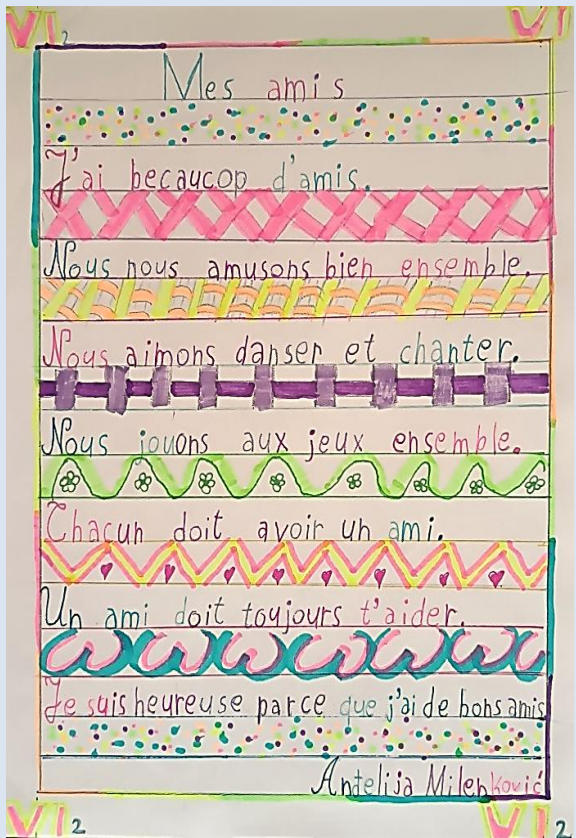 VI2 VI
Mes amis
J'ai becaucop d'amis.
Nous nous amusons bien ensemble.
Nous aimons danser et chanter.
Nous jouons aux jeux ensemble.
Chacun doit avoir un ami.
Un ami doit toujours t'aider.
Je suis heureuse parce que j'ai de bons amis
Anđelija Milenković
VI2 VI2